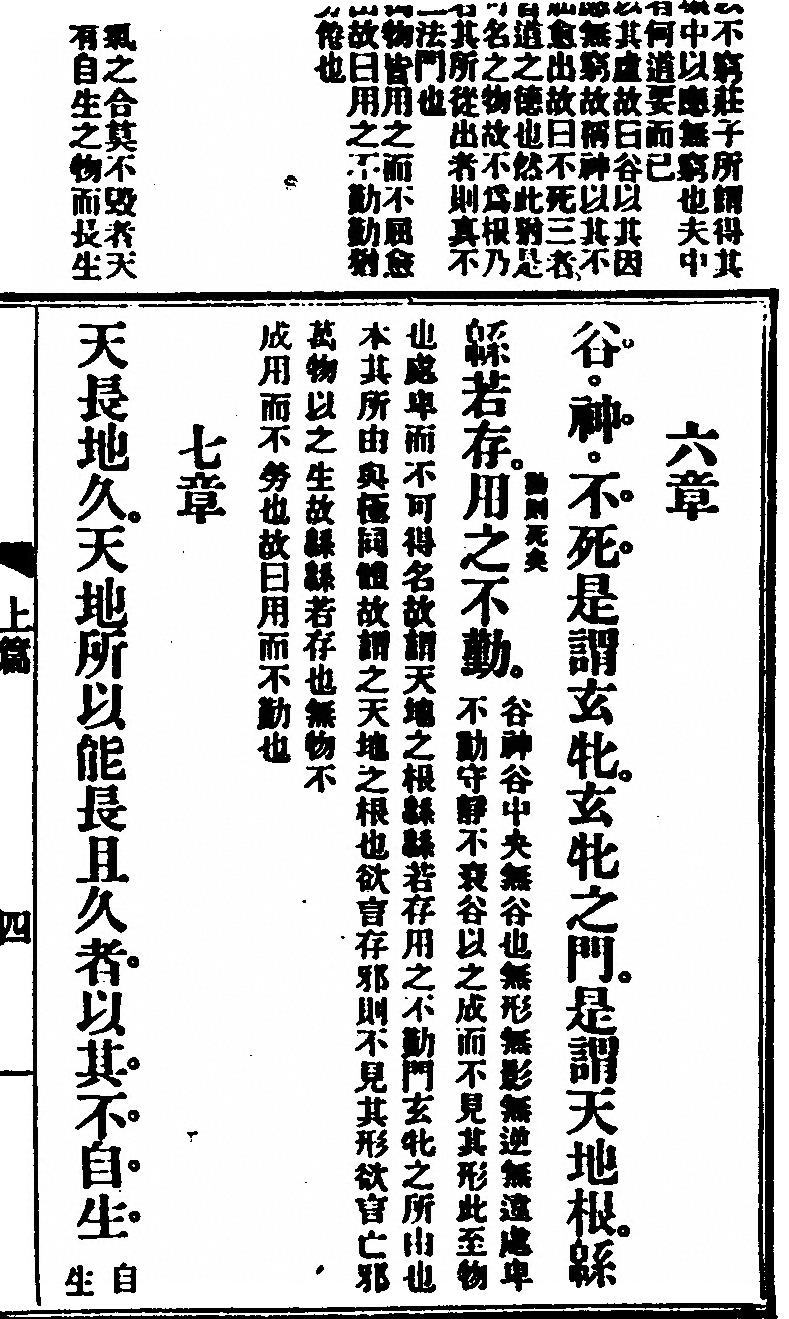 不窮莊子所謂得其
中以應無窮也夫中
何道要而已
以其虛故曰谷以其因
應無窮故稱神以其不
愈出故曰不死三者
道之德也然此猶是
名之物故不爲根乃
其所從出者則真不
二法門也
物皆用之而不屈愈
出故曰用之不勤勤猶
倦也
氣之合莫不毀者天
有自生之物而長生
六章
谷神不死是謂玄牝玄牝之門是謂天地根緜
動則死矣
緜若存用之不勤
谷神谷中央無谷也無形無影無逆無違處卑
不動守靜不衰谷以之成而不見其形此至物
也處卑而不可得名故謂天地之根緜緜若存用之不勤門玄牝之所由也
本其所由與極同體故謂之天地之根也欲言存邪則不見其形欲言亡邪
萬物以之生故緜緜若存也無物不
成用而不勞也故曰用而不勤也
七章
天長地久天地所以能長且久者以其不自生
自
生
上篇
四